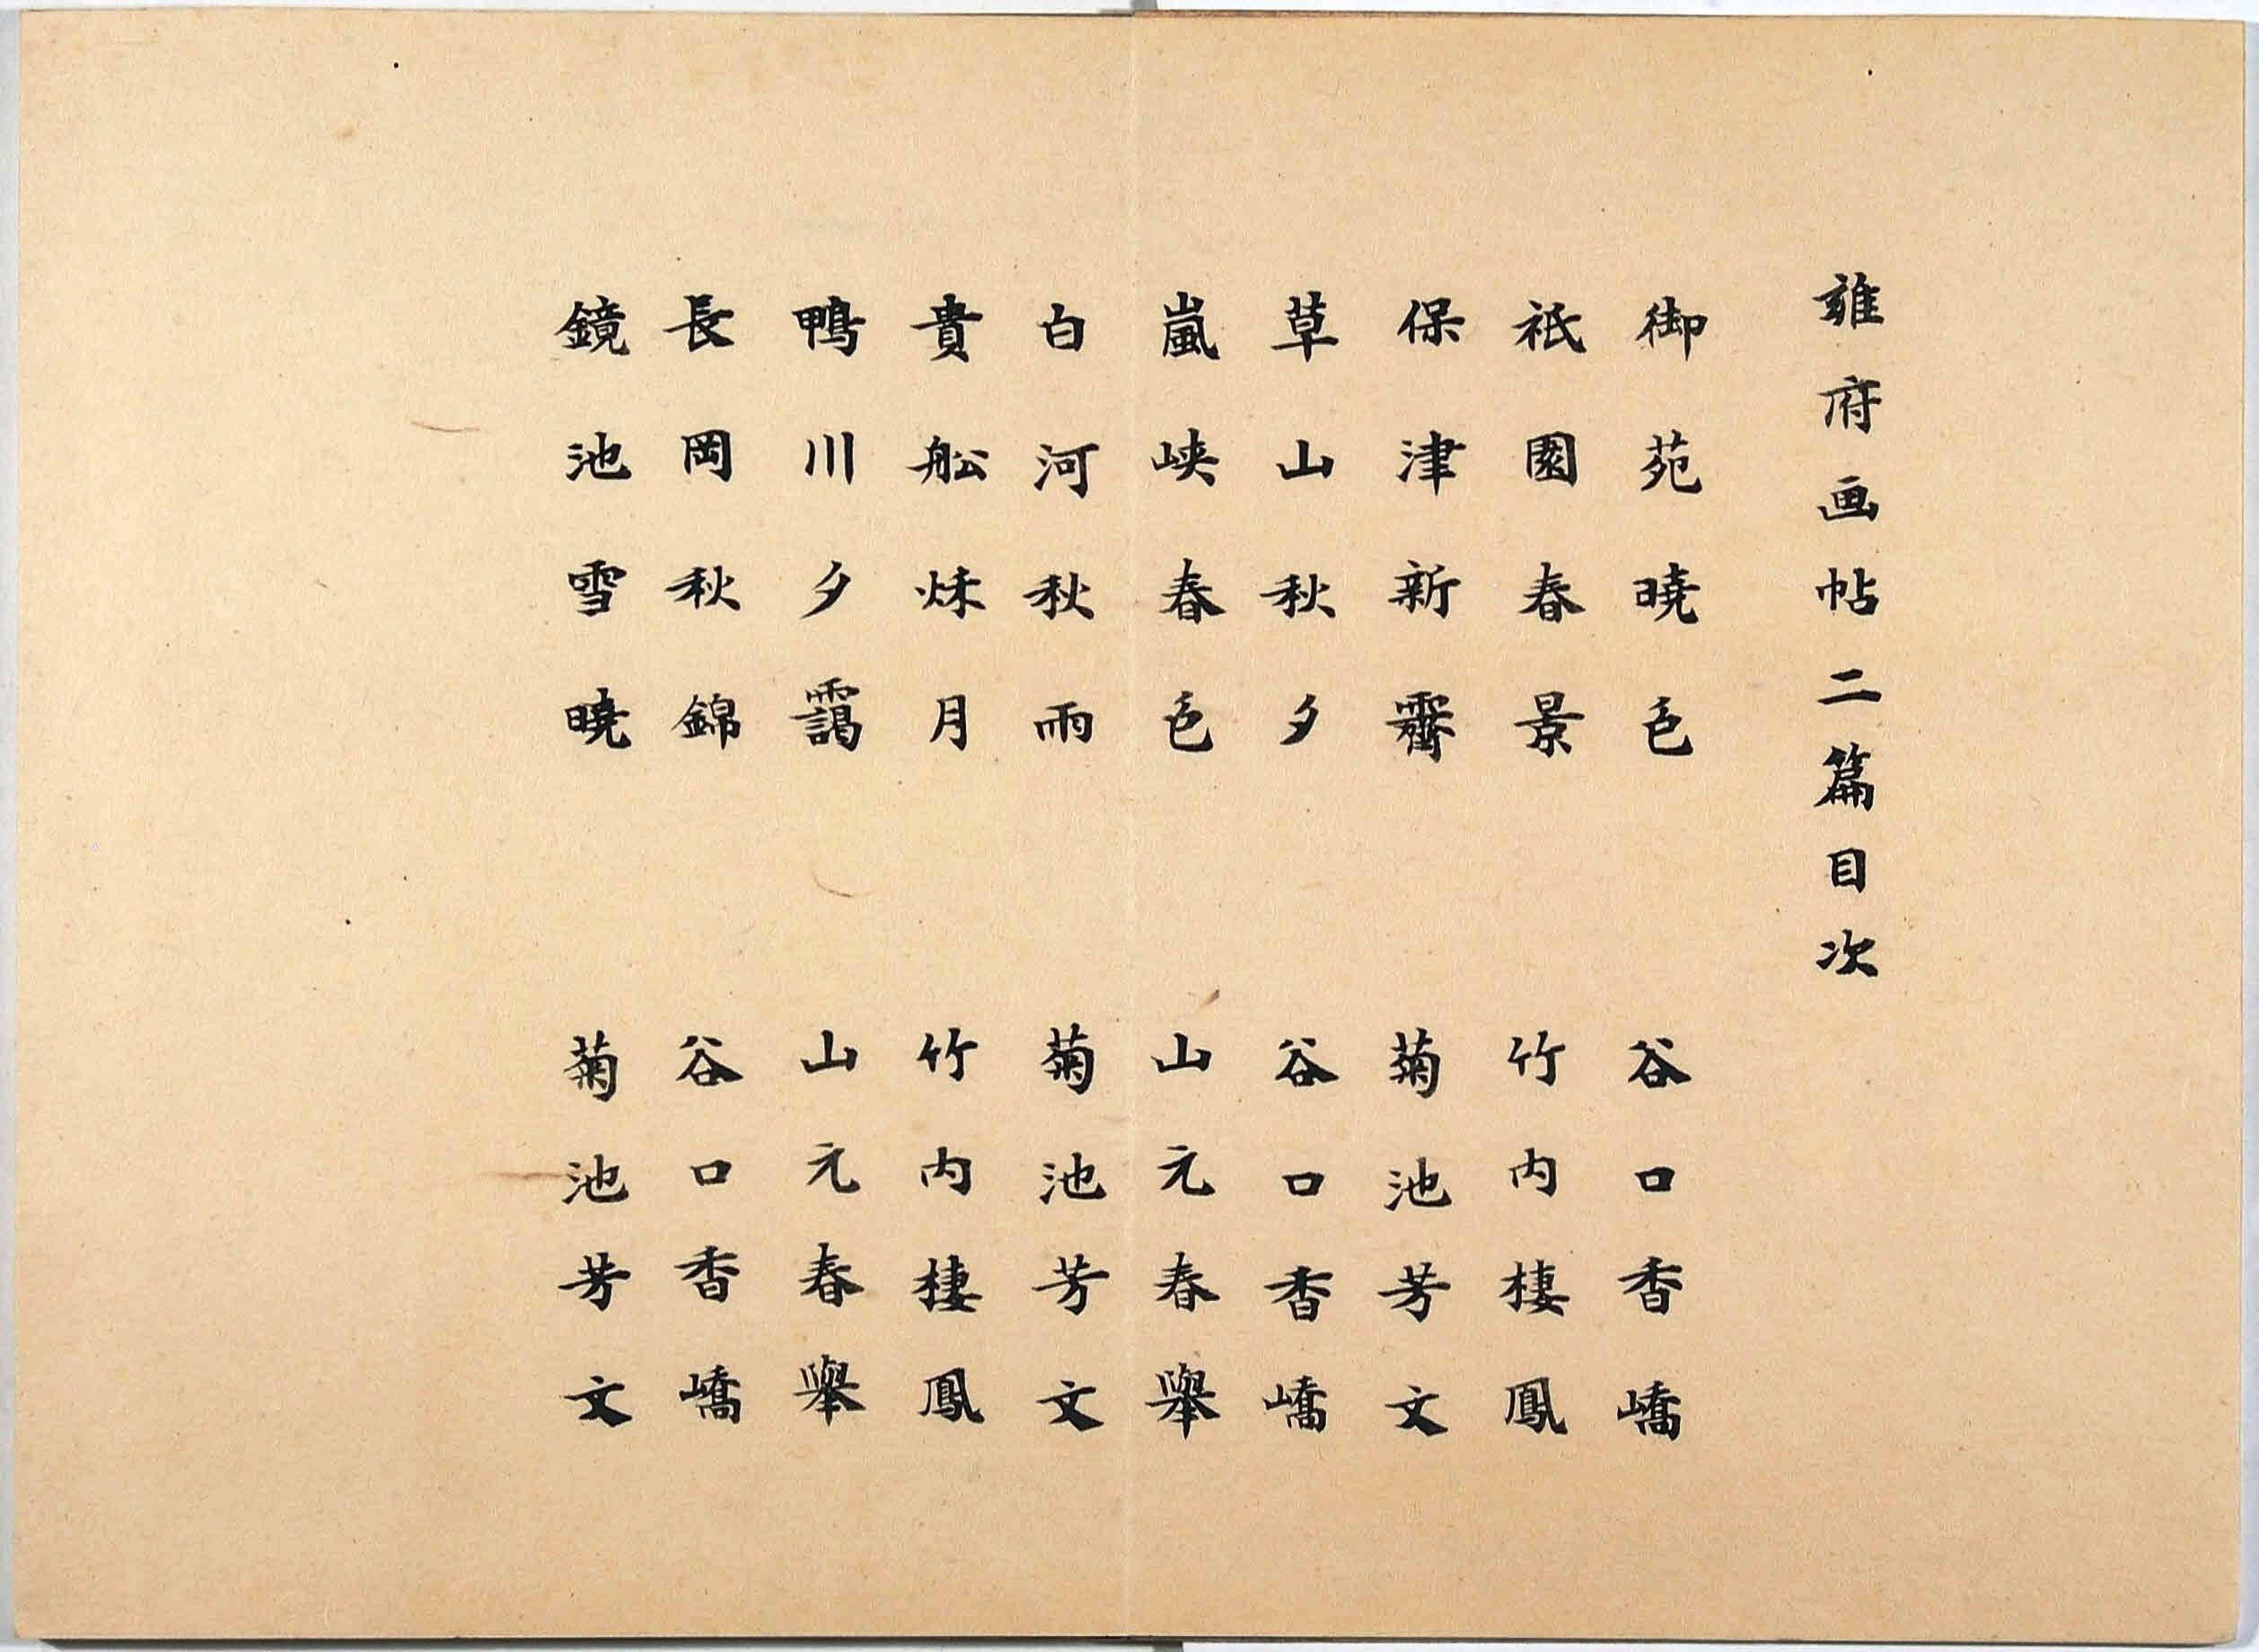 雍府画帖二篇目次
御苑暁色 谷口香嶠
祇園春景 竹内棲鳳
保津新霽 菊池芳文
草山秋夕 谷口香嶠
嵐峡春色 山元春舉
白河秋雨 菊池芳文
貴舩秌月 竹内棲鳳
鴨川夕靄 山元春舉
長岡秋錦 谷口香嶠
鏡池雪暁 菊池芳文